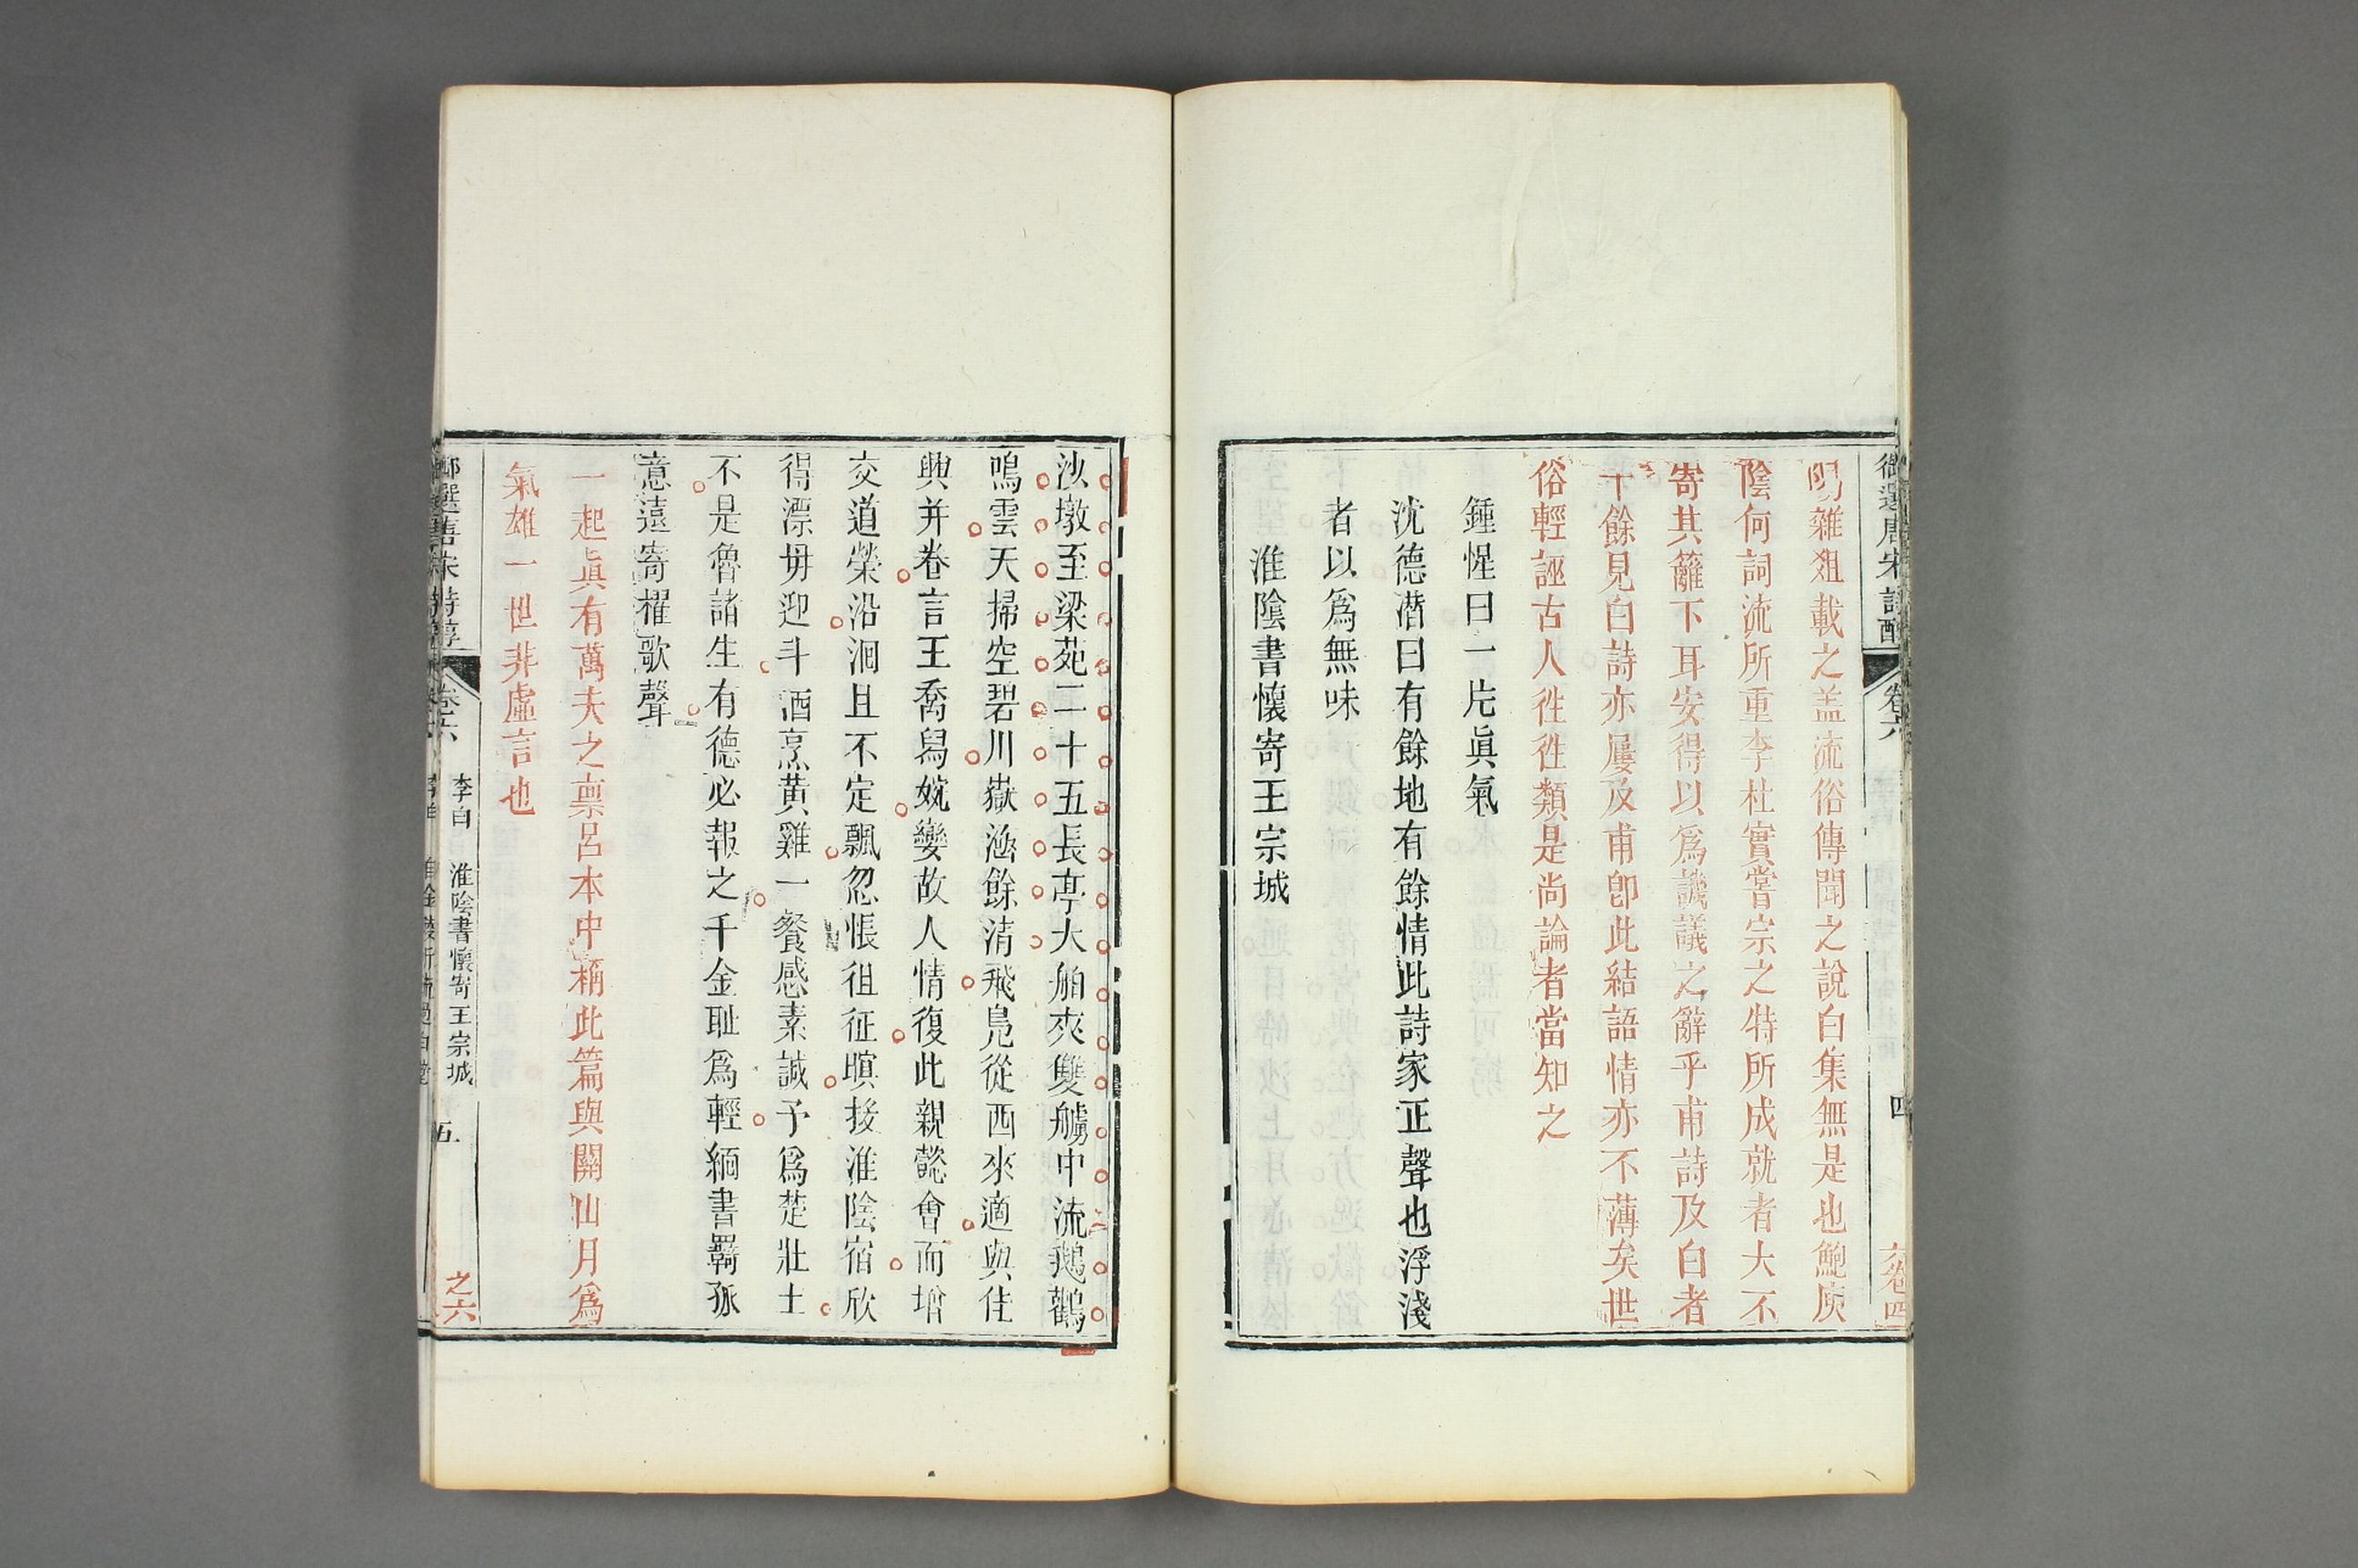 御選唐宋詩醇
卷六
四
六卷四
陽雜俎載之盖流俗傳聞之說白集無是也鮑庾
陰何詞流所重李杜實嘗宗之特所成就者大不
寄其籬下耳安得以爲譏議之辭乎甫詩及白者
十餘見白詩亦屢及甫卽此結語情亦不薄矣世
俗輕誣古人徃徃類是尚論者當知之
鍾惺曰一片眞氣
沈德潛曰有餘地有餘情此詩家正聲也浮淺
者以爲無味
淮陰書懷寄王宗城
沙墩至梁苑二十五長亭大舶夾雙艣中流鵝鸛
鳴雲天掃空碧川嶽涵餘清飛鳧從西來適與佳
興并眷言王喬舄婉孌故人情復此親懿會而增
交道榮沿洄且不定飄忽悵徂征暝投淮陰宿欣
得漂母迎斗酒烹黃雞一餐感素誠予爲楚壯士
不是魯諸生有德必報之千金耻爲輕緬書羈孤
意遠寄櫂歌聲
一起眞有萬夫之禀呂本中稱此篇與關山月爲
氣雄一世非虛言也
御選唐宋詩醇
卷六
李白
淮陰書懷寄王宗城
五
之六